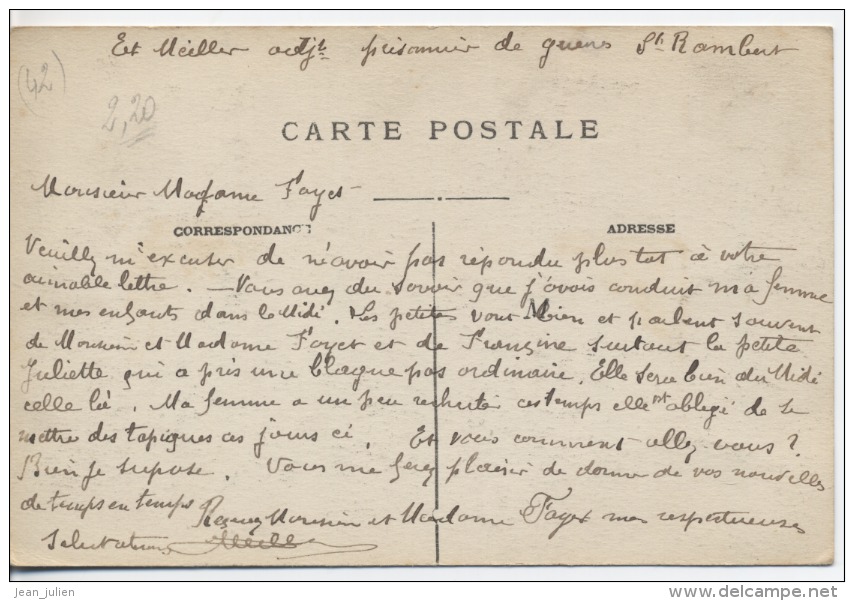 Et Méiller adjt prisonnier de guerre St Rambert
(42)
2,20
CARTE POSTALE
Monsieur Madame Fayet
CORRESPONDANCE
ADRESSE
Veuilly m'excuser de n'avoir pas répondu plus tot à votre
aimable lettre. — Vous avez du savoir que j'avois conduit ma femme
et mes enfants dans le Midi. Les petites vont bien et parlent souvent
de Monsieur et Madame Fayet et de Francine surtout la petite
Juliette qui a pris une blague pas ordinaire. Elle sera bien du Midi
celle là. Ma femme a un peu rechuté ces temps elle est obligé de se
mettre des tapiques ces jours ci. Et vous comment allez vous?
Bien je suppose. Vous me ferez plaisir de donner de vos nouvelles
de temps en temps Recevez Monsieur et Madame Fayet mes respectueuses
Salutations Méiller
jean_julien
www.delcampe.net